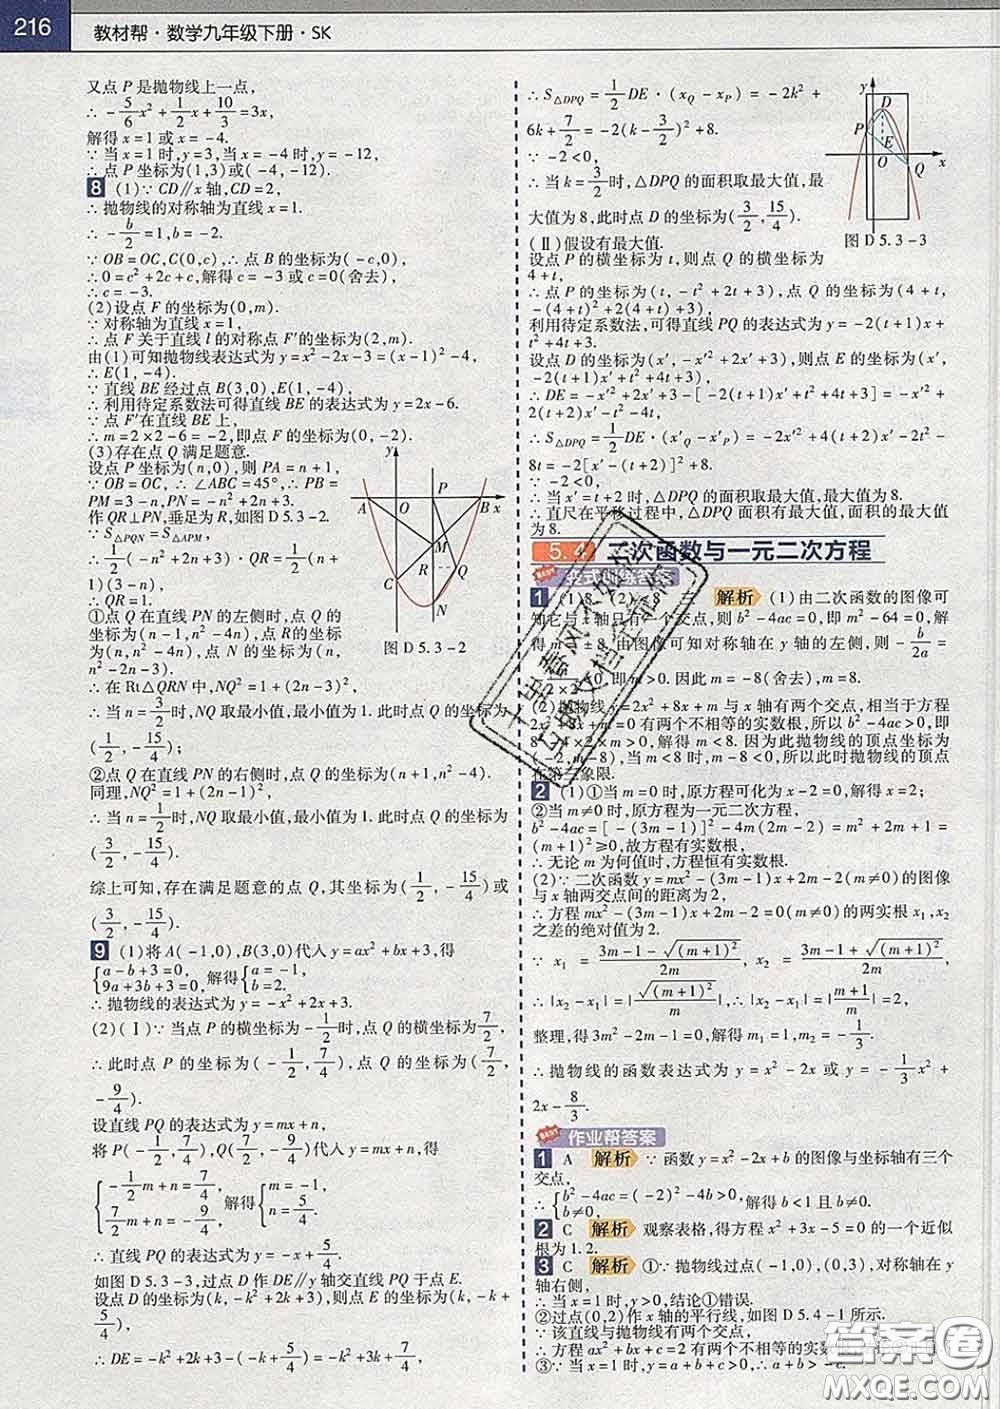 216 教材帮·数学九年级下册·SK
又点 P 是抛物线上一点,
∴ -5/6x²+1/2x+10/3=3x,
解得 x=1 或 x=-4.
∵ 当 x=1 时,y=3,当 x=-4 时,y=-12,
∴ 点 P 坐标为(1,3)或(-4,-12).
8 (1)∵ CD∥x 轴,CD=2,
∴ 抛物线的对称轴为直线 x=1.
∴ -b/2=1,b=-2.
∵ OB=OC,C(0,c),∴ 点 B 的坐标为(-c,0),
∴ 0=c²+2c+c,解得 c=-3 或 c=0(舍去),
∴ c=-3.
(2)设点 F 的坐标为(0,m).
∵ 对称轴为直线 x=1,
∴ 点 F 关于直线 l 的对称点 F′的坐标为(2,m).
由(1)可知抛物线表达式为 y=x²-2x-3=(x-1)²-4,
∴ E(1,-4).
∵ 直线 BE 经过点 B(3,0),E(1,-4),
∴ 利用待定系数法可得直线 BE 的表达式为 y=2x-6.
∵ 点 F′在直线 BE 上,
∴ m=2×2-6=-2,即点 F 的坐标为(0,-2).
(3)存在点 Q 满足题意.
设点 P 坐标为(n,0),则 PA=n+1,
∵ OB=OC,∴ ∠ABC=45°,∴ PB=
PM=3-n,PN=-n²+2n+3.
作 QR⊥PN,垂足为 R,如图 D5.3-2.
∵ S△PQN=S△APM,
∴ 1/2(-n²+2n+3)·QR=1/2(n+
1)(3-n),
∴ QR=1.
①点 Q 在直线 PN 的左侧时,点 Q 的
坐标为(n-1,n²-4n),点 R的坐标为
(n,n²-4n),点 N 的坐标为(n,n²-
2n-3).
y
A O P B x
M
C R Q
N
图 D5.3-2
∴ 在 Rt△QRN 中,NQ²=1+(2n-3)²,
∴ 当 n=3/2时,NQ 取最小值,最小值为1.此时点 Q 的坐标为
(1/2,-15/4);
②点 Q 在直线 PN 的右侧时,点 Q 的坐标为(n+1,n²-4).
同理,NQ²=1+(2n-1)²,
∴ 当 n=1/2时,NQ 取最小值,最小值为1.此时点 Q 的坐标为
(3/2,-15/4).
综上可知,存在满足题意的点 Q,其坐标为(1/2,-15/4)或
(3/2,-15/4).
9 (1)将 A(-1,0),B(3,0)代入 y=ax²+bx+3,得
{a-b+3=0, 9a+3b+3=0, 解得{a=-1, b=2.
∴ 抛物线的表达式为 y=-x²+2x+3.
(2)(Ⅰ)∵ 当点 P 的横坐标为-1/2时,点 Q 的横坐标为7/2,
∴ 此时点 P 的坐标为(-1/2,7/4),点 Q 的坐标为(7/2,
-9/4).
设直线 PQ 的表达式为 y=mx+n,
将 P(-1/2,7/4),Q(7/2,-9/4)代入 y=mx+n,得
{-1/2m+n=7/4, 7/2m+n=-9/4, 解得{m=-1, n=5/4.
∴ 直线 PQ 的表达式为 y=-x+5/4.
如图 D5.3-3,过点 D 作 DE∥y 轴交直线 PQ 于点 E.
设点 D 的坐标为(k,-k²+2k+3),则点 E 的坐标为(k,-k+
5/4),
∴ DE=-k²+2k+3-(-k+5/4)=-k²+3k+7/4,
∴ S△DPQ=1/2DE·(xQ-xP)=-2k²+
6k+7/2=-2(k-3/2)²+8.
∵ -2<0,
∴ 当 k=3/2时,△DPQ 的面积取最大值,最
大值为8,此时点 D 的坐标为(3/2,15/4).
(Ⅱ)假设有最大值.
y
D
P
E
O Q x
图 D5.3-3
设点 P 的横坐标为 t,则点 Q 的横坐标为
4+t,
∴ 点 P 的坐标为(t,-t²+2t+3),点 Q 的坐标为(4+t,
-(4+t)²+2(4+t)+3),
利用待定系数法,可得直线 PQ 的表达式为 y=-2(t+1)x+
t²+4t+3.
设点 D 的坐标为(x′,-x′²+2x′+3),则点 E 的坐标为(x′,
-2(t+1)x′+t²+4t+3),
∴ DE=-x′²+2x′+3-[-2(t+1)x′+t²+4t+3]=-x′²+
2(t+2)x′-t²-4t,
∴ S△DPQ=1/2DE·(x′Q-x′P)=-2x′²+4(t+2)x′-2t²-
8t=-2[x′-(t+2)]²+8.
∵ -2<0,
∴ 当 x′=t+2 时,△DPQ 的面积取最大值,最大值为8.
∴ 直尺在平移过程中,△DPQ 的面积有最大值,最大值
为8.
5.4 二次函数与一元二次方程
1 (1)8 (2) 解析 (1)由二次函数的图像可
知它与 x 轴只有一个交点,则 b²-4ac=0,即 m²-64=0,解
得 m=±8.由图像可知对称轴在 y 轴的左侧,则-b/2a=
<0,即 m>0.因此 m=-8(舍去),m=8.
(2)抛物线 y=2x²+8x+m 与 x 轴有两个交点,相当于方程
2x²+8x+m=0 有两个不相等的实数根,所以 b²-4ac>0,即
8²-4×2×m>0,解得 m<8.因为此抛物线的顶点坐标为
(-2,m-8),m-8<0,所以此时抛物线的顶点
在第三象限.
2 (1)①当 m=0 时,原方程可化为 x-2=0,解得 x=2;
②当 m≠0 时,原方程为一元二次方程,
b²-4ac=[-(3m-1)]²-4m(2m-2)=m²+2m+1=
(m+1)²≥0,故方程有实数根.
∴ 无论 m 为何值时,方程恒有实数根.
(2)∵ 二次函数 y=mx²-(3m-1)x+2m-2 的图像
与 x 轴两交点间的距离为2,
∴ 方程 mx²-(3m-1)x+2m-2=0(m≠0)的两实根 x₁,x₂
之差的绝对值为2.
∵ x₁=(3m-1-√(m+1)²)/2m, x₂=(3m-1+√(m+1)²)/2m,
∴ |x₂-x₁|=|√(m+1)²/m|,∴ |x₂-x₁|=|(m+1)/m|=2,
整理,得 3m²-2m-1=0,解得 m₁=1,m₂=-1/3.
∴ 抛物线的函数表达式为 y=x²-2x 或 y=-1/3x²+
2x-8/3.
作业帮答案
1 A 解析 ∵ 函数 y=x²-2x+b 的图像与坐标轴有三个
交点,
∴ {b²-4ac=(-2)²-4b>0, b≠0, 解得 b<1 且 b≠0.
2 C 解析 观察表格,得方程 x²+3x-5=0 的一个近似
根为1.2.
3 C 解析 ①∵ 抛物线过点(-1,0),(0,3),对称轴在 y
轴右侧,
∴ 当 x=1 时,y>0,结论①错误.
②过点(0,2)作 x 轴的平行线,如图 D5.4-1所示.
∵ 该直线与抛物线有两个交点,
∴ 方程 ax²+bx+c=2 有两个不相等的实数
③∵ 当 x=1 时,y=a+b+c>0,∴ a+b>-c.
答案圈
MXQE.COM